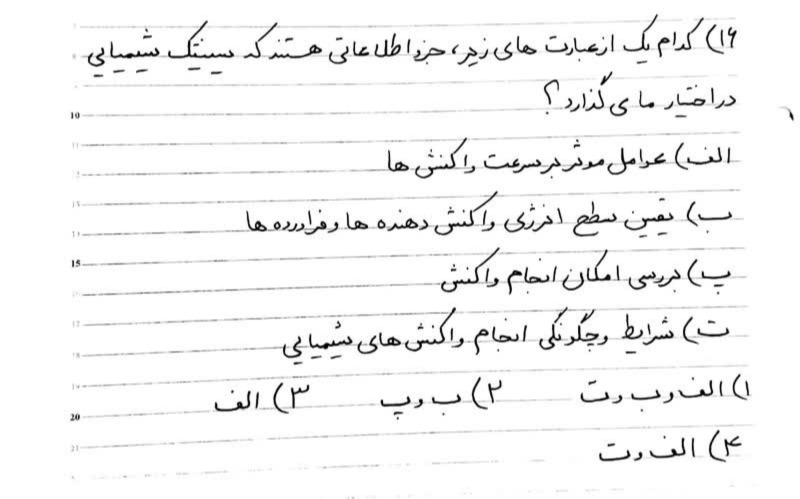 ۱۶) کدام یک از عبارت های زیر، جزء اطلاعاتی هستند که سینتیک شیمیایی
در اختیار ما می گذارد؟
10
الف) عوامل موثر بر سرعت واکنش ها
ب) تعیین سطح انرژی واکنش دهنده ها و فراورده ها
15
پ) بررسی امکان انجام واکنش
ت) شرایط و چگونگی انجام واکنش های شیمیایی
۱) الف و ب و ت ۲) ب و پ ۳) الف
20
۴) الف و ت